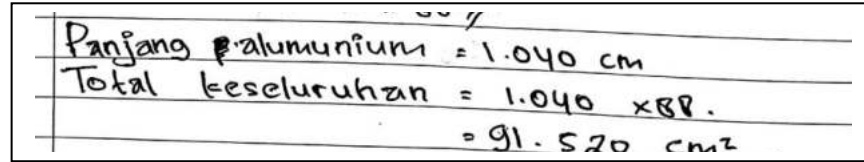 Panjang alumunium = 1.040 cm
Total keseluruhan = 1.040 x88.
= 91.520 cm²